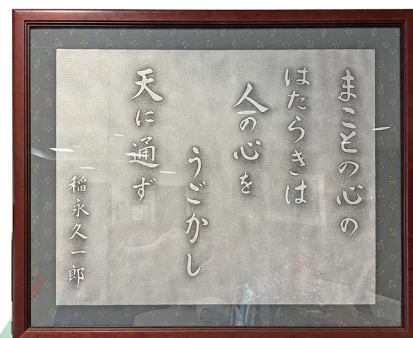 まことの心の
はたらきは
人の心を
うごかし
天に通ず
稲永久一郎